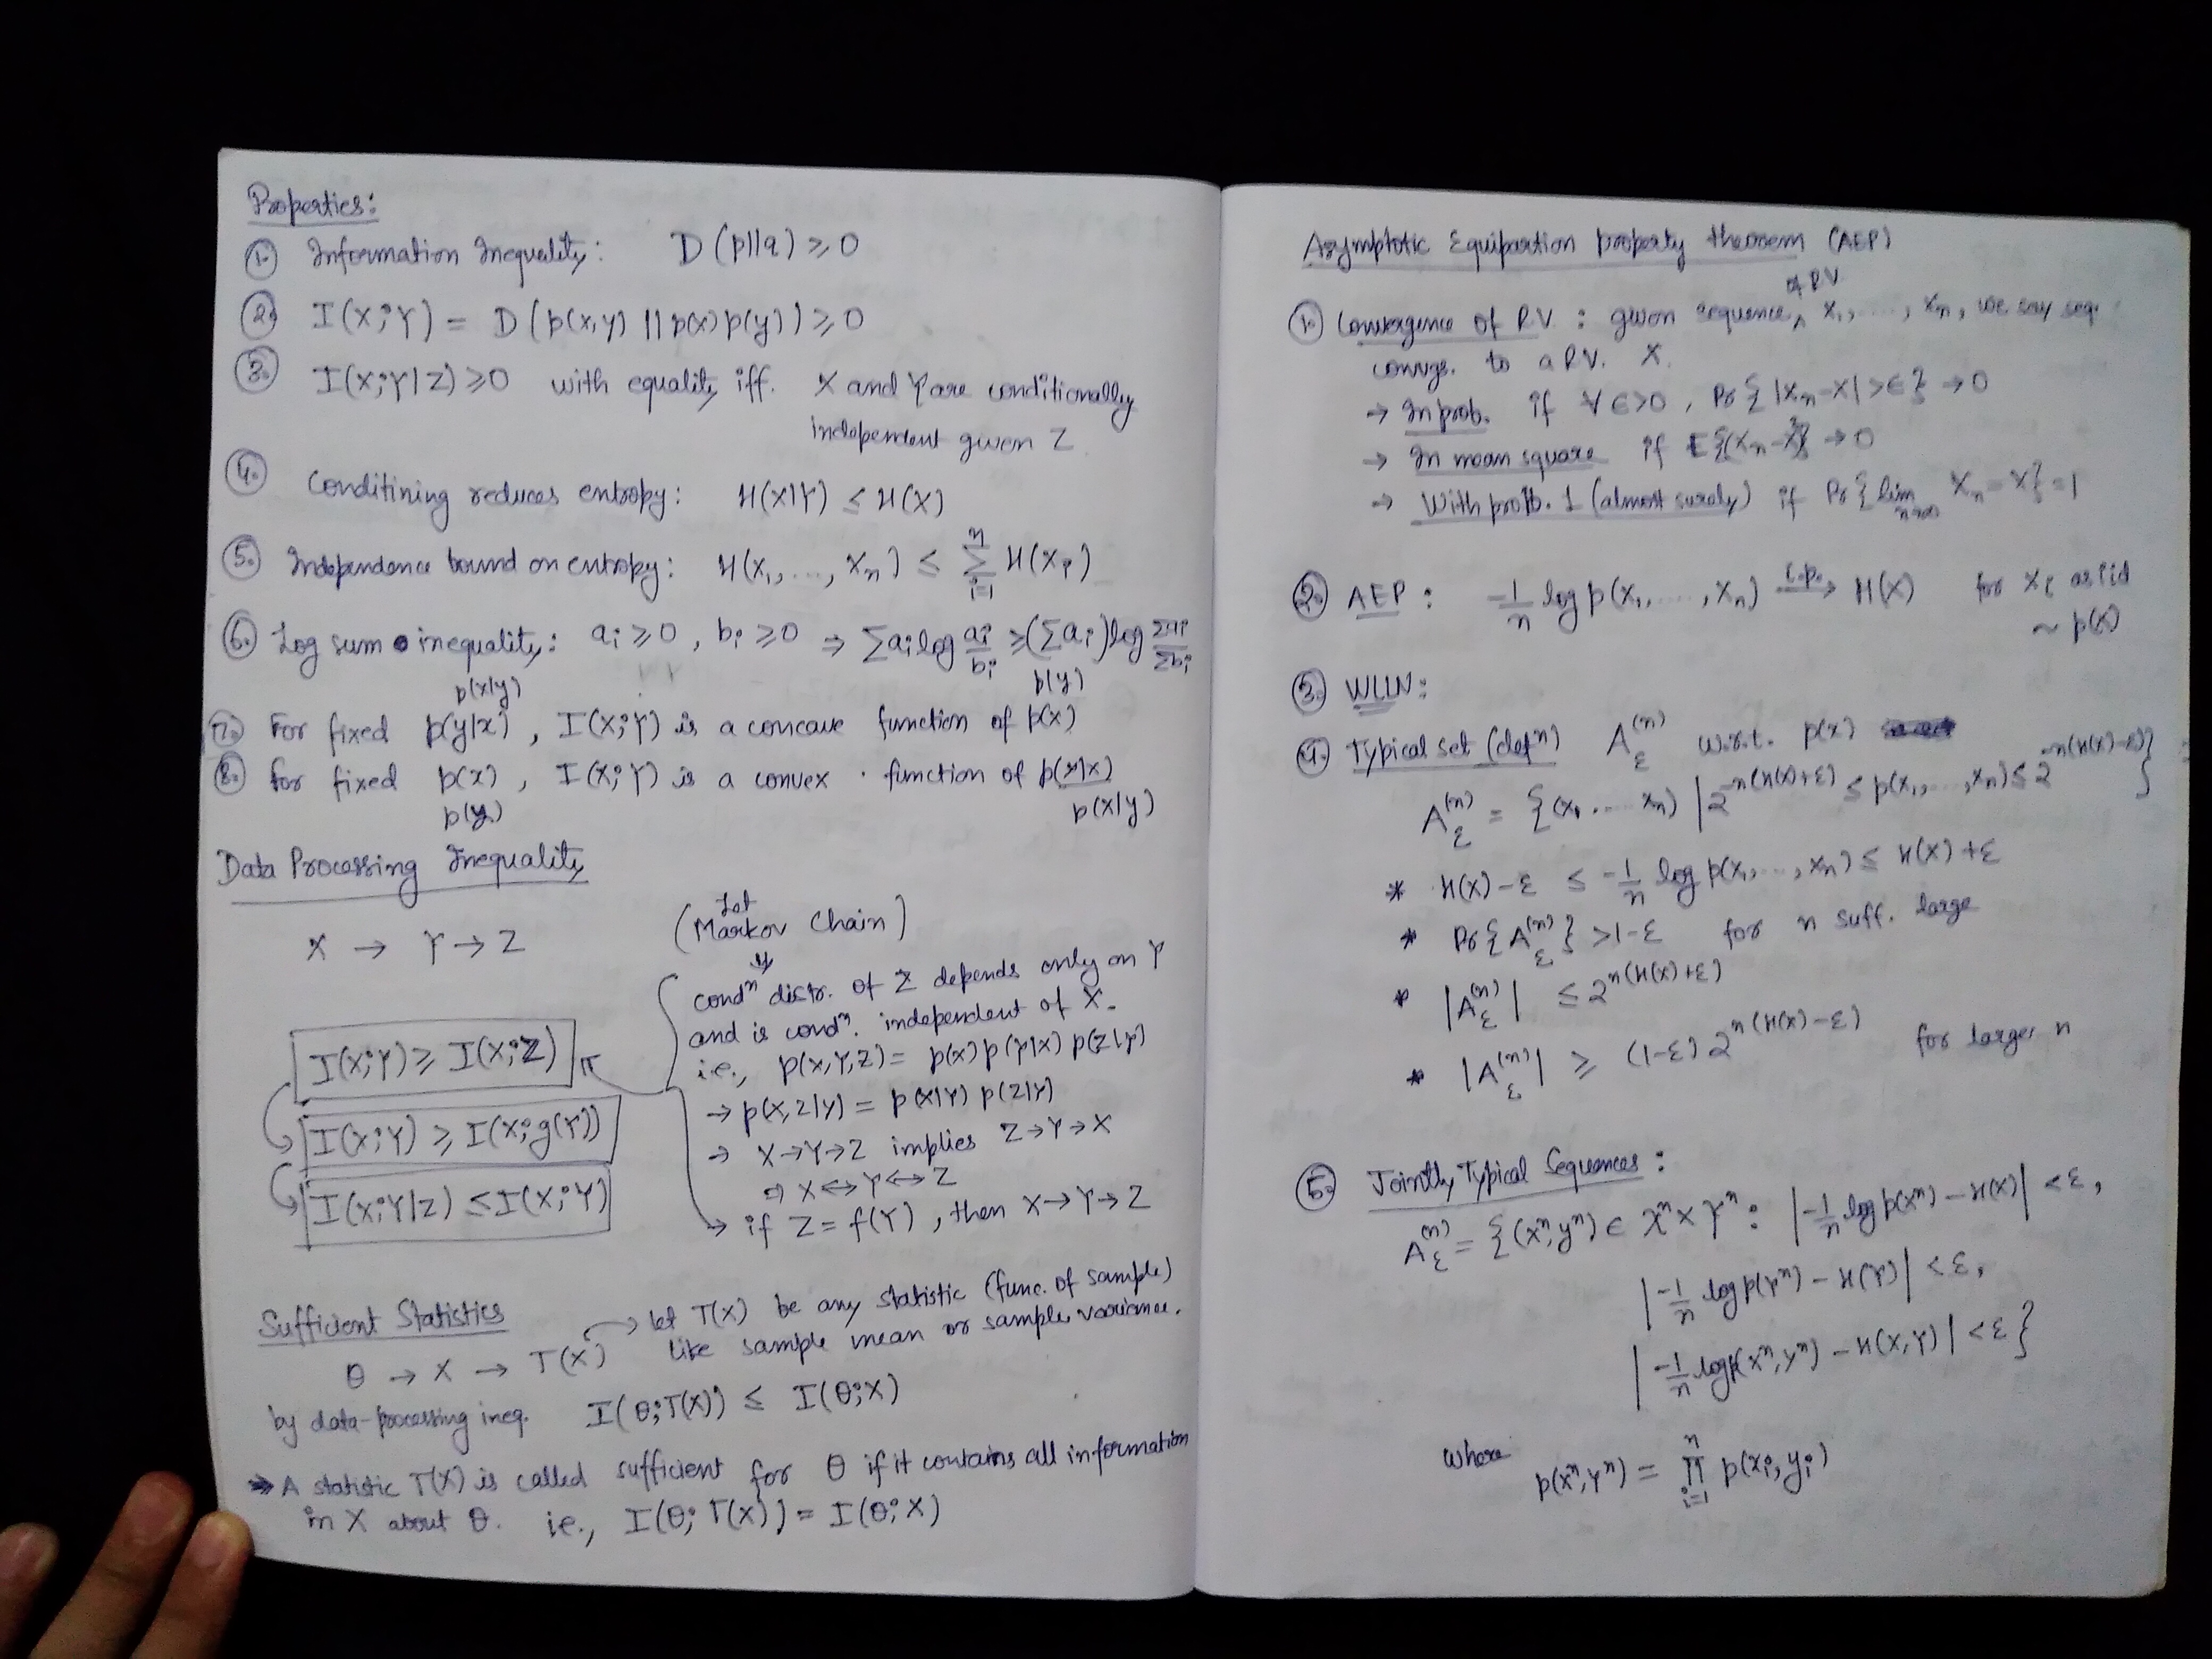 Properties:
① Information Inequality: D(p||q) ≥ 0
② I(X;Y) = D(p(x,y) || p(x)p(y)) ≥ 0
③ I(X;Y|Z) ≥ 0 with equality iff. X and Y are conditionally
independent given Z
④ Conditioning reduces entropy: H(X|Y) ≤ H(X)
⑤ Independence bound on entropy: H(X₁,...,Xₙ) ≤ Σᵢ₌₁ⁿ H(Xᵢ)
⑥ Log sum inequality: aᵢ ≥ 0, bᵢ ≥ 0 ⇒ Σaᵢ log aᵢ/bᵢ ≥ (Σaᵢ) log Σaᵢ/Σbᵢ
p(x|y) p(y)
⑦ For fixed p(y|x), I(X;Y) is a concave function of p(x)
⑧ For fixed p(x), I(X;Y) is a convex function of p(y|x)
p(y) p(x|y)
Data Processing Inequality
X → Y → Z (Let Markov Chain)
⇓
I(X;Y) ≥ I(X;Z)
I(X;Y) ≥ I(X;g(Y))
I(X;Y|Z) ≤ I(X;Y)
condⁿ distr. of Z depends only on Y
and is condⁿ. independent of X.
i.e., p(x,y,z) = p(x) p(y|x) p(z|y)
→ p(x,z|y) = p(x|y) p(z|y)
→ X→Y→Z implies Z→Y→X
⇒ X↔Y↔Z
→ if Z = f(Y), then X→Y→Z
Sufficient Statistics
→ let T(X) be any statistic (func. of sample)
θ → X → T(X) like sample mean or sample variance.
by data-processing ineq. I(θ;T(X)) ≤ I(θ;X)
→ A statistic T(X) is called sufficient for θ if it contains all information
in X about θ. i.e., I(θ;T(X)) = I(θ;X)
Asymptotic Equipartion property theorem (AEP)
of RV
① Convergence of RV: given sequence ∧ X₁,...,Xₙ, we say seq.
converge. to a RV. X.
→ In prob. if ∀ ε>0, Pr{|Xₙ-X|>ε} → 0
→ In mean square if E{(Xₙ-X)²} → 0
→ With prob. 1 (almost surely) if Pr{lim n→∞ Xₙ = X} = 1
② AEP: -1/n log p(X₁,...,Xₙ) i.p.→ H(X) for Xᵢ as iid
~ p(x)
③ WLLN:
④ Typical set (defⁿ) A_ε⁽ⁿ⁾ w.r.t. p(x)
A_ε⁽ⁿ⁾ = {(x₁....xₙ) | 2^-n(H(X)+ε) ≤ p(x₁,...,xₙ) ≤ 2^-n(H(X)-ε)}
* H(X)-ε ≤ -1/n log p(x₁,...,xₙ) ≤ H(X)+ε
* Pr{A_ε⁽ⁿ⁾} > 1-ε for n suff. large
* |A_ε⁽ⁿ⁾| ≤ 2^n(H(X)+ε)
* |A_ε⁽ⁿ⁾| ≥ (1-ε) 2^n(H(X)-ε) for large n
⑤ Jointly Typical Sequences:
A_ε⁽ⁿ⁾ = {(xⁿ,yⁿ) ∈ 𝒳ⁿ×𝒴ⁿ: |-1/n log p(xⁿ) - H(X)| < ε,
|-1/n log p(yⁿ) - H(Y)| < ε,
|-1/n log p(xⁿ,yⁿ) - H(X,Y)| < ε}
Where p(xⁿ,yⁿ) = ∏ᵢ₌₁ⁿ p(xᵢ,yᵢ)